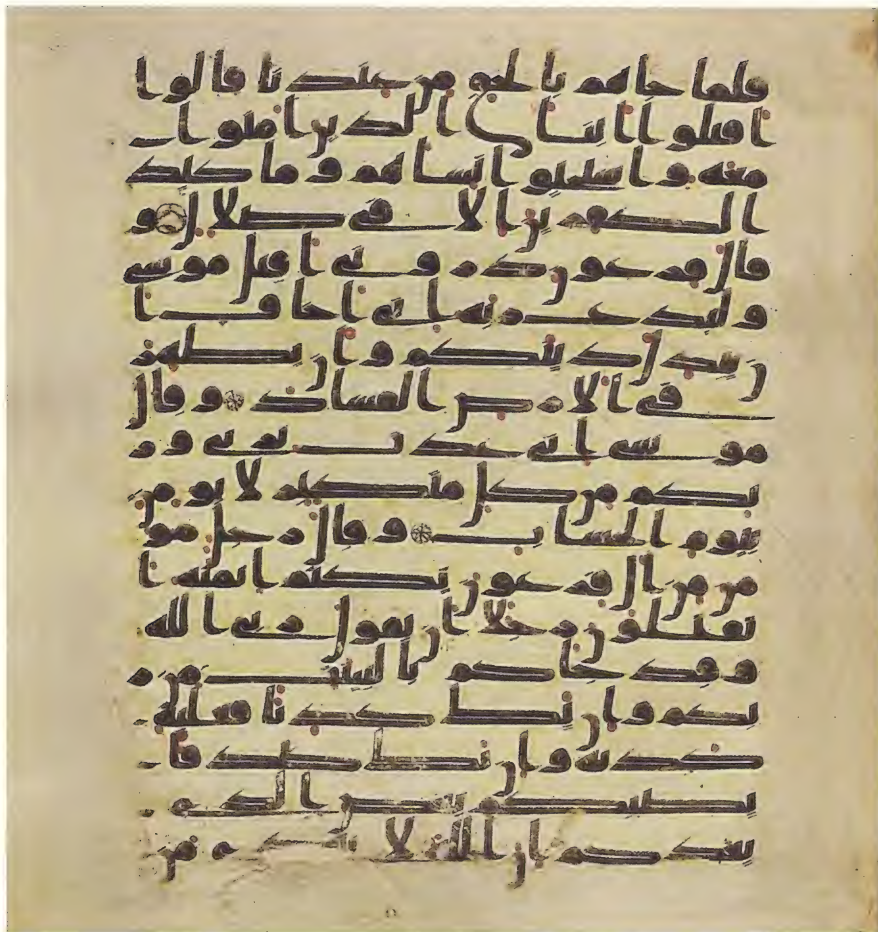 فلما جاهم بالحق من عندنا قالوا
اقتلوا ابنا الذين امنوا
معه واستحيوا نساهم وما كيد
الكفرين الا في ضلال و
قال فرعون ذروني اقتل موسى
وليدع ربه اني اخاف ا
ن يبدل دينكم وان يظهر
في الارض الفساد وقال
موسى اني عذت بربي ور
بكم من كل متكبر لا يومن
بيوم الحساب وقال رجل مو
من من ال فرعون يكتم ايمنه ا
تقتلون رجلا ان يقول ربي الله
وقد جاكم بالبينت من ر
بكم وان يك كذبا فعليه
كذبه وان يك صادقا
يصبكم بعض الذي
يعدكم ان الله لا يهدي من